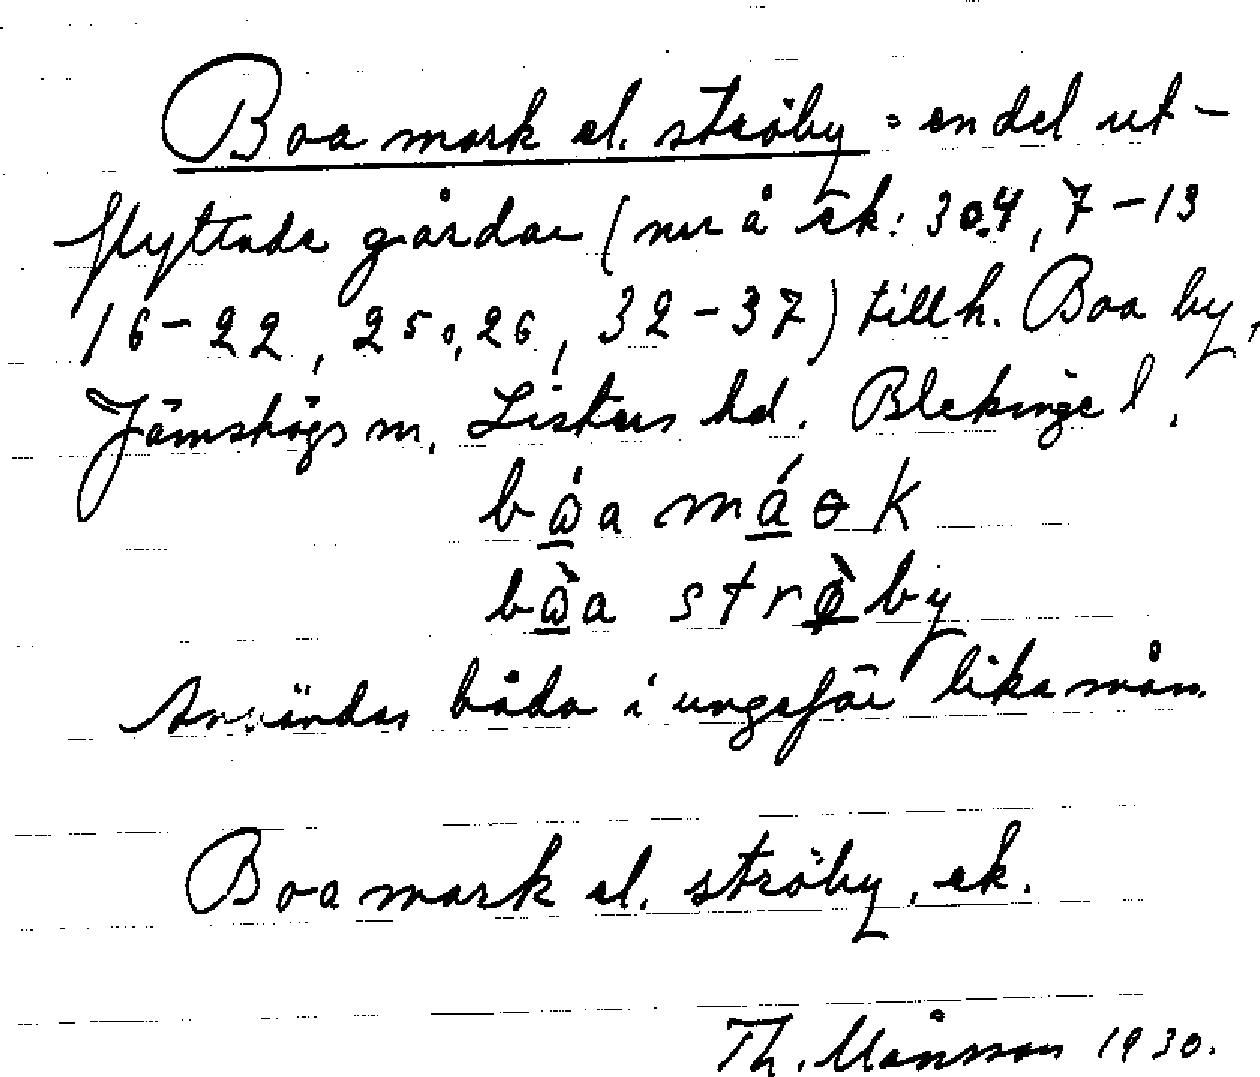 Boa mark el. ströby = en del ut-
flyttade gårdar (nr å ek: 3 o. 4, 7-13
16-22, 25 o. 26, 32-37) tillh. Boa by,
Jämshögs sn. Listers hd. Blekinge l.
bώ̲a má̲ɵk
bὼ̲a strø̲̀by
Användas båda i ungefär lika mån.
Boa mark el. ströby, ek.
Th. Månsson 1930.